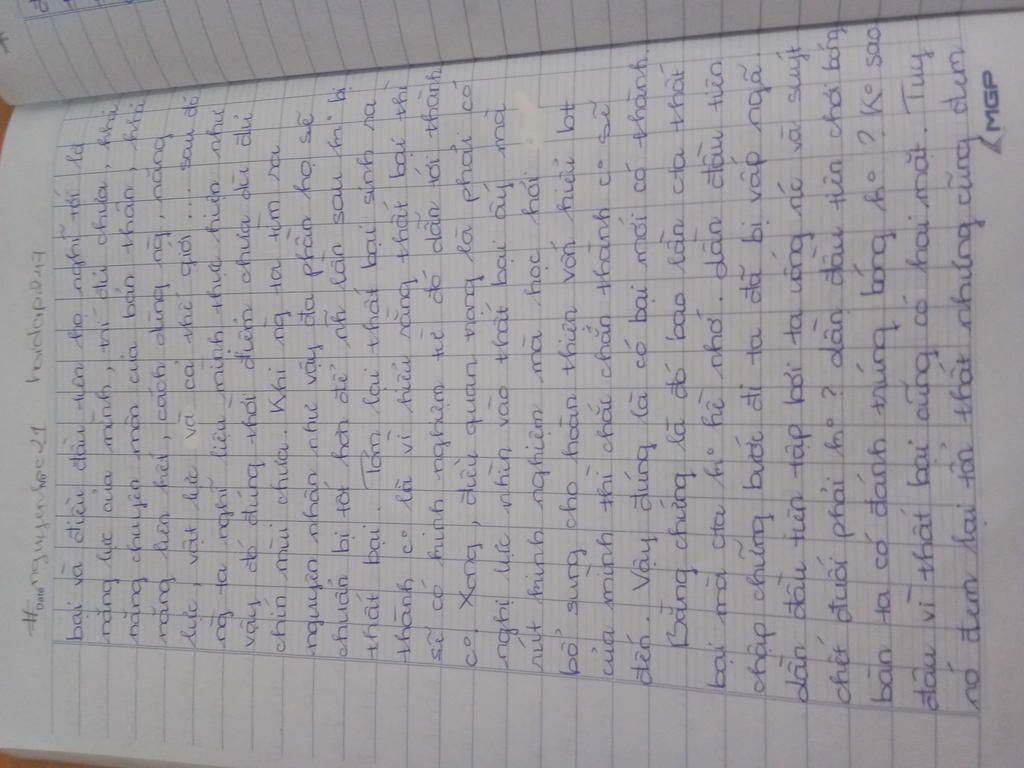 # Dangnguynhoc21 hoidap247
bại và điều đầu tiên họ nghĩ tới là
năng lực của mình, trí đủ chưa, khả
năng chuyên môn của bản thân, khả
năng liên kết, cách dùng ng, năng
lực, vật lực và cả thế giới... sau đó
ng ta nghĩ liệu mình thực hiện như
vậy đó đúng thời điểm chưa đủ độ
chín mùi chưa. Khi ng ta tìm ra
nguyên nhân như vậy đa phần họ sẽ
chuẩn bị tốt hơn để ch lần sau ko bị
thất bại. Tóm lại thất bại sinh ra
thành co là vì hiểu rằng thất bại thì
sẽ có kinh nghiệm từ đó dẫn tới thành
co. Xong, điều quan trọng là phải có
nghị lực nhìn vào thất bại ấy mà
rút kinh nghiệm mà học hỏi
bổ sung cho hoàn thiện vốn hiểu bt
của mình thì chắc chắn thành co sẽ
đến. Vậy đúng là có bại mới có thành.
Bằng chứng là đó bao lần cta thất
bại mà cta ko hề nhớ. Lần đầu tiên
chập chững bước đi ta đã bị vấp ngã
lần đầu tiên tập bơi ta uống nc và suýt
chết đuối phải ko? Lần đầu tiên chơi bóng
bàn ta có đánh trúng bóng ko? Ko sao
đâu vì thất bại cũng có hai mặt. Tuy
nó đem lại tổn thất nhưng cũng đem
MGP